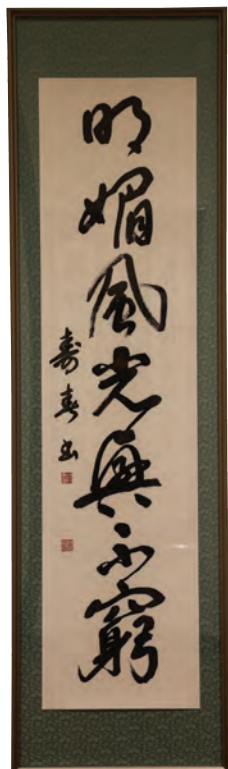 明媚風光興不窮
壽春書